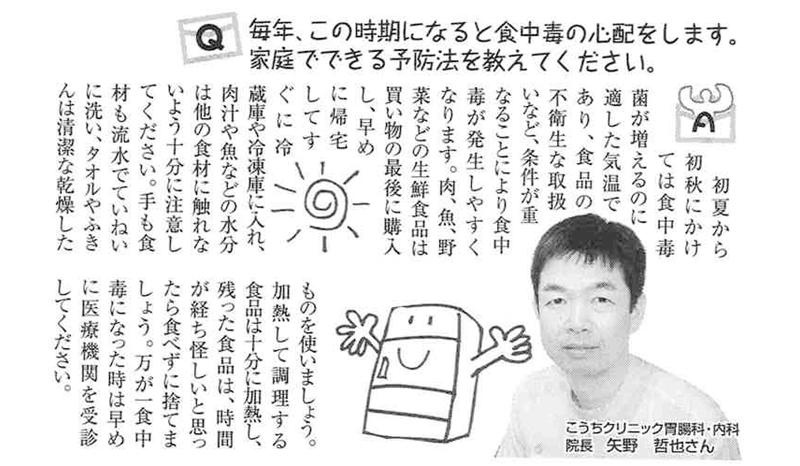 Q
毎年、この時期になると食中毒の心配をします。
家庭でできる予防法を教えてください。
A
初夏から
初秋にかけ
ては食中毒
菌が増えるのに
適した気温で
あり、食品の
不衛生な取扱
いなど、条件が重
なることにより食中
毒が発生しやすく
なります。肉、魚、野
菜などの生鮮食品は
買い物の最後に購入
し、早め
に帰宅
してす
ぐに冷
蔵庫や冷凍庫に入れ、
肉汁や魚などの水分
は他の食材に触れな
いよう十分に注意し
てください。手も食
材も流水でていねい
に洗い、タオルやふき
んは清潔な乾燥した
ものを使いましょう。
加熱して調理する
食品は十分に加熱し、
残った食品は、時間
が経ち怪しいと思っ
たら食べずに捨てま
しょう。万が一食中
毒になった時は早め
に医療機関を受診
してください。
こうちクリニック胃腸科・内科
院長 矢野 哲也さん